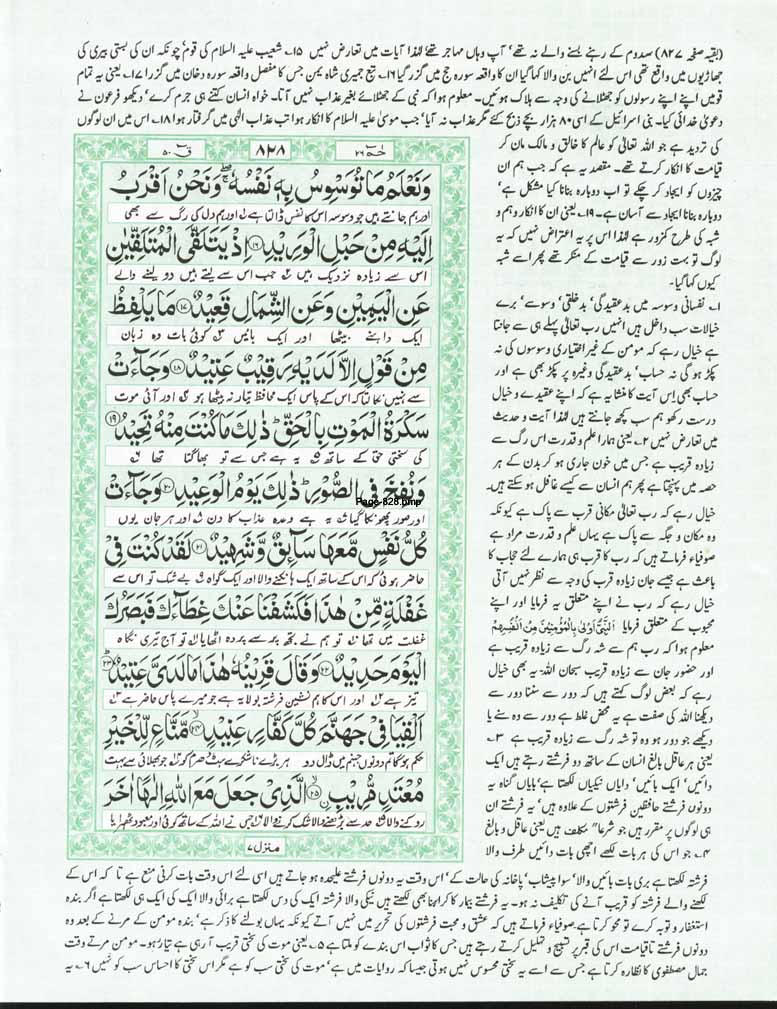 (بقیہ صفحہ ۸۲۷) سدوم کے رہنے بسنے والے نہ تھے' آپ وہاں مہاجر تھے لہٰذا آیات میں تعارض نہیں ۱۵۔ شعیب علیہ السلام کی قوم' چونکہ ان کی بستی بیری کی
جھاڑیوں میں واقع تھی اس لئے انہیں بن والا کہا گیا ان کا واقعہ سورہ حج میں گزر گیا ۱۶۔ تبع حمیری شاہ یمن جس کا مفصل واقعہ سورہ دخان میں گزرا ۱۷۔ یعنی یہ تمام
قومیں اپنے اپنے رسولوں کو جھٹلانے کی وجہ سے ہلاک ہوئیں۔ معلوم ہوا کہ نبی کے جھٹلائے بغیر عذاب نہیں آتا۔ خواہ انسان کتنے ہی جرم کرے' دیکھو فرعون نے
دعویٰ خدائی کیا۔ بنی اسرائیل کے اسی ۸۰ ہزار بچے ذبح کئے مگر عذاب نہ آیا' جب موسیٰ علیہ السلام کا انکار ہوا تب عذاب الٰہی میں گرفتار ہوا ۱۸۔ اس میں ان لوگوں
کی تردید ہے جو اللہ تعالیٰ کو عالم کا خالق و مالک مان کر
قیامت کا انکار کرتے تھے۔ مقصد یہ ہے کہ جب ہم ان
چیزوں کو ایجاد کر چکے تو اب دوبارہ بنانا کیا مشکل ہے'
دوبارہ بنانا ایجاد سے آسان ہے۔ ۱۹۔ یعنی ان کا انکار وہم و
شبہ کی طرح کمزور ہے لہٰذا اس پر یہ اعتراض نہیں کہ یہ
لوگ تو بہت زور سے قیامت کے منکر تھے پھر اسے شبہ
کیوں کہا گیا۔
۱۔ نفسانی وسوسہ میں بدعقیدگی' بدخلقی' وسوسے' برے
خیالات سب داخل ہیں انہیں رب تعالیٰ پہلے ہی سے جانتا
ہے خیال رہے کہ مومن کے غیر اختیاری وسوسوں کی نہ
پکڑ ہوگی نہ حساب' بدعقیدگی وغیرہ پر پکڑ بھی ہے اور
حساب بھی اس آیت کا منشا یہ ہے کہ اپنے عقیدے و خیال
درست رکھو ہم سب کچھ جانتے ہیں لہٰذا آیت و حدیث
میں تعارض نہیں ۲۔ یعنی ہمارا علم و قدرت اس رگ سے
زیادہ قریب ہے جس میں خون جاری ہو کر بدن کے ہر
حصہ میں پہنچتا ہے پھر ہم انسان سے کیسے غافل ہو سکتے ہیں۔
خیال رہے کہ رب تعالیٰ مکانی قرب سے پاک ہے کیونکہ
وہ مکان و جگہ سے پاک ہے یہاں علم و قدرت مراد ہے
صوفیاء فرماتے ہیں کہ رب کا قرب ہی ہمارے لئے حجاب کا
باعث ہے جیسے جان زیادہ قرب کی وجہ سے نظر نہیں آتی
خیال رہے کہ رب نے اپنے متعلق یہ فرمایا اور اپنے
محبوب کے متعلق فرمایا اَلنَّبِیُّ اَوْلٰی بِالْمُؤْمِنِیْنَ مِنْ اَنْفُسِهِمْ
معلوم ہوا کہ رب ہم سے شہ رگ سے زیادہ قریب ہے
اور حضور جان سے زیادہ قریب سبحان اللہ یہ بھی خیال
رہے کہ بعض لوگ کہتے ہیں کہ دور سے سننا دور سے
دیکھنا اللہ کی صفت ہے یہ محض غلط ہے دور سے وہ سنے یا
دیکھے جو دور ہو وہ تو شہ رگ سے زیادہ قریب ہے ۳۔
یعنی ہر عاقل بالغ انسان کے ساتھ دو فرشتے رہتے ہیں ایک
دائیں' ایک بائیں' دایاں نیکیاں لکھتا ہے' بایاں گناہ یہ
دونوں فرشتے حافظین فرشتوں کے علاوہ ہیں' یہ فرشتے ان
ہی لوگوں پر مقرر ہیں جو شرعا" مکلف ہیں یعنی عاقل و بالغ
۴۔ جو اس کی ہر بات لکھے اچھی بات دائیں طرف والا
حٰمٓ ۲۶
۸۲۸
قٓ ۵۰
وَنَعْلَمُ مَا تُوَسْوِسُ بِهٖ نَفْسُهٗ وَنَحْنُ اَقْرَبُ
اور ہم جانتے ہیں جو وسوسہ اس کا نفس ڈالتا ہے اور ہم دل کی رگ سے بھی
اِلَيْهِ مِنْ حَبْلِ الْوَرِيْدِ ۱۶ اِذْ يَتَلَقَّى الْمُتَلَقِّيٰنِ
اس سے زیادہ نزدیک ہیں جب اس سے لیتے ہیں دو لینے والے
عَنِ الْيَمِيْنِ وَعَنِ الشِّمَالِ قَعِيْدٌ ۱۷ مَا يَلْفِظُ
ایک داہنے بیٹھا اور ایک بائیں کوئی بات وہ زبان
مِنْ قَوْلٍ اِلَّا لَدَيْهِ رَقِيْبٌ عَتِيْدٌ ۱۸ وَجَآءَتْ
سے نہیں نکالتا کہ اس کے پاس ایک محافظ تیار نہ بیٹھا ہو اور آئی موت
سَكْرَةُ الْمَوْتِ بِالْحَقِّ ذٰلِكَ مَا كُنْتَ مِنْهُ تَحِيْدُ ۱۹
کی سختی حق کے ساتھ یہ ہے جس سے تو بھاگتا تھا
وَنُفِخَ فِي الصُّوْرِ ذٰلِكَ يَوْمُ الْوَعِيْدِ ۲۰ وَجَآءَتْ
Page-828.bmp
اور صور پھونکا گیا یہ ہے وعدہ عذاب کا دن اور ہر جان یوں
كُلُّ نَفْسٍ مَّعَهَا سَآىِٕقٌ وَّشَهِيْدٌ ۲۱ لَقَدْ كُنْتَ فِيْ
حاضر ہوئی کہ اس کے ساتھ ایک ہانکنے والا اور ایک گواہ بے شک تو اس سے
غَفْلَةٍ مِّنْ هٰذَا فَكَشَفْنَا عَنْكَ غِطَآءَكَ فَبَصَرُكَ
غفلت میں تھا تو ہم نے تجھ پر سے پردہ اٹھایا تو آج تیری نگاہ
الْيَوْمَ حَدِيْدٌ ۲۲ وَقَالَ قَرِيْنُهٗ هٰذَا مَا لَدَيَّ عَتِيْدٌ ۲۳
تیز ہے اور اس کا ہم نشین فرشتہ بولا یہ ہے جو میرے پاس حاضر ہے
اَلْقِيَا فِيْ جَهَنَّمَ كُلَّ كَفَّارٍ عَنِيْدٍ ۲۴ مَّنَّاعٍ لِّلْخَيْرِ
حکم ہوگا تم دونوں جہنم میں ڈال دو ہر بڑے ناشکرے ہٹ دھرم کو جو بھلائی سے بہت
مُعْتَدٍ مُّرِيْبِ ۲۵ اِ۟لَّذِيْ جَعَلَ مَعَ اللّٰهِ اِلٰهًا اٰخَرَ
روکنے والا حد سے بڑھنے والا شک کرنے والا جس نے اللہ کے ساتھ کوئی اور معبود ٹھہرایا
منزل ۷
فرشتہ لکھتا ہے بری بات بائیں والا' سوا پیشاب' پاخانہ کی حالت کے' اس وقت یہ دونوں فرشتے علیحدہ ہو جاتے ہیں اسی لئے اس وقت بات کرنی منع ہے تا کہ اس کے
لکھنے والے فرشتہ کو قریب آنے کی تکلیف نہ ہو۔ یہ فرشتے بیمار کا کراہنا بھی لکھتے ہیں نیکی والا فرشتہ ایک کی دس لکھتا ہے برائی والا ایک کی ایک ہی لکھتا ہے اگر بندہ
استغفار و توبہ کرے تو محو کرتا ہے صوفیاء فرماتے ہیں کہ عشق و محبت فرشتوں کی تحریر میں نہیں آتے کیونکہ یہاں بولنے کا ذکر ہے' بندہ مومن کے مرنے کے بعد وہ
دونوں فرشتے تا قیامت اس کی قبر پر تسبیح و تہلیل کرتے رہتے ہیں جس کا ثواب اس بندے کو ملتا ہے ۵۔ یعنی موت کی سختی قریب آ رہی ہے تیار ہو۔ مومن مرتے وقت
جمال مصطفوی کا نظارہ کرتا ہے جس سے اسے یہ سختی محسوس نہیں ہوتی جیسا کہ روایات میں ہے' موت کی سختی سب کو ہے مگر اس سختی کا احساس سب کو نہیں ۶۔ یہ